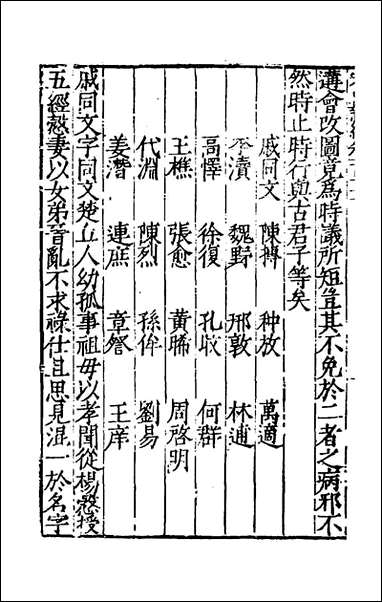 溝會改圖竟為時議所短豈其不免於二者之病邪不
然時止時行與古君子等矣
戚同文 陳摶 种放 萬適
李瀆 魏野 邢敦 林逋
高懌 徐復 孔旼 何群
王樵 張愈 黄晞 周啓明
代淵 陳烈 孫侔 劉易
姜潛 連庶 章詧 王庠
戚同文字同文楚丘人幼孤事祖母以孝聞從楊慤授
五經慤妻以女弟晉亂不求祿仕且思見混一於名字